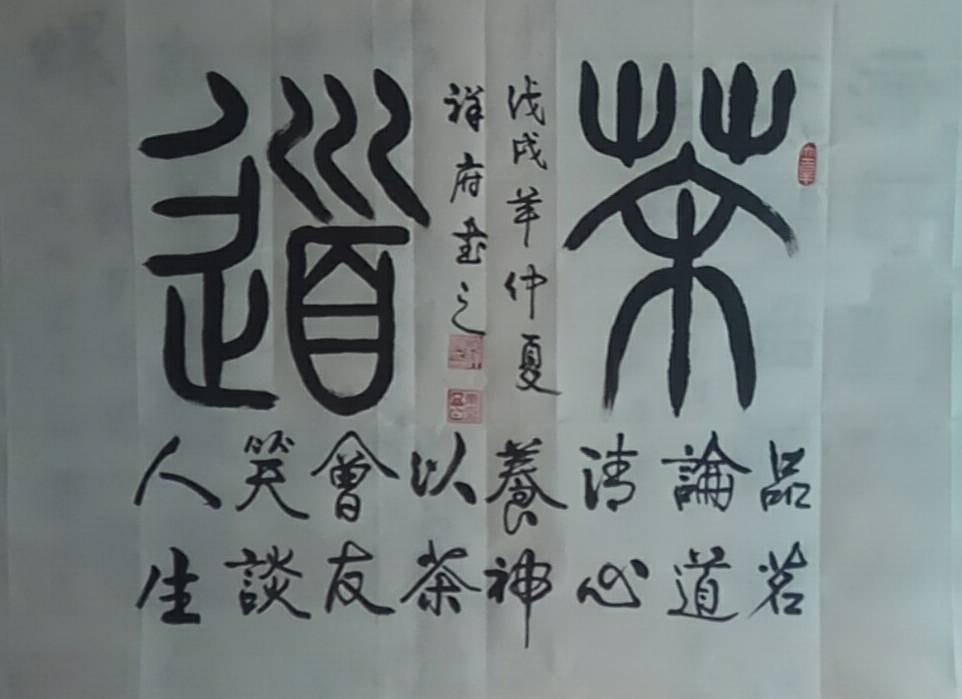 茶道
戊戌年仲夏
祥府書之
品茗
論道
清心
養神
以茶
會友
笑談
人生